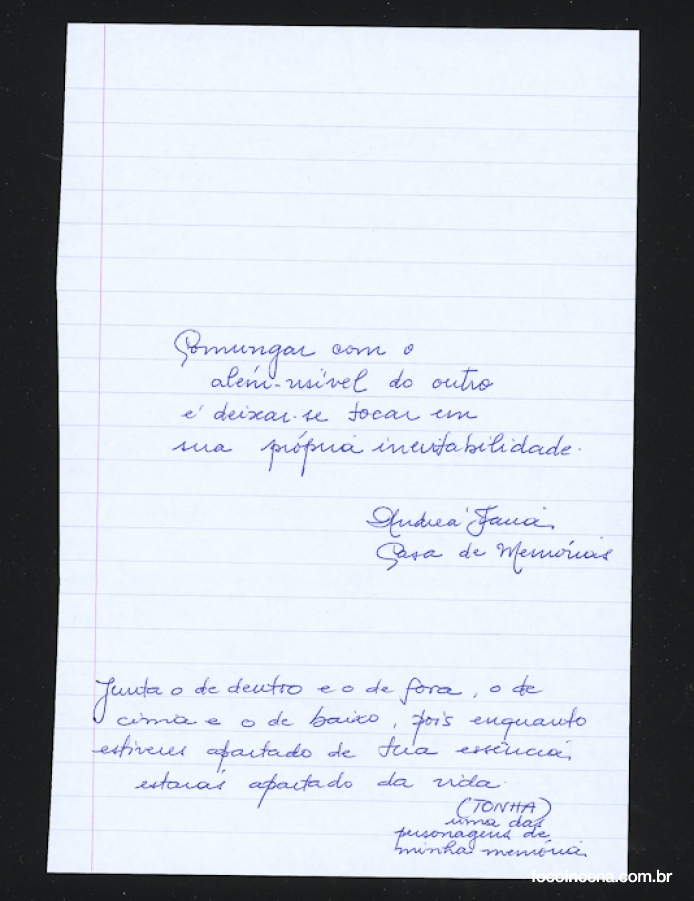 Comungar com o
além-visível do outro
é deixar-se tocar em
sua própria inevitabilidade.
Andréa Faria,
Casa de Memórias
Junta o de dentro e o de fora, o de
cima e o de baixo, pois enquanto
estiveres apartado de tua essência,
estarás apartado da vida.
(TONHA)
uma das
personagens de
minha memória
focoincena.com.br